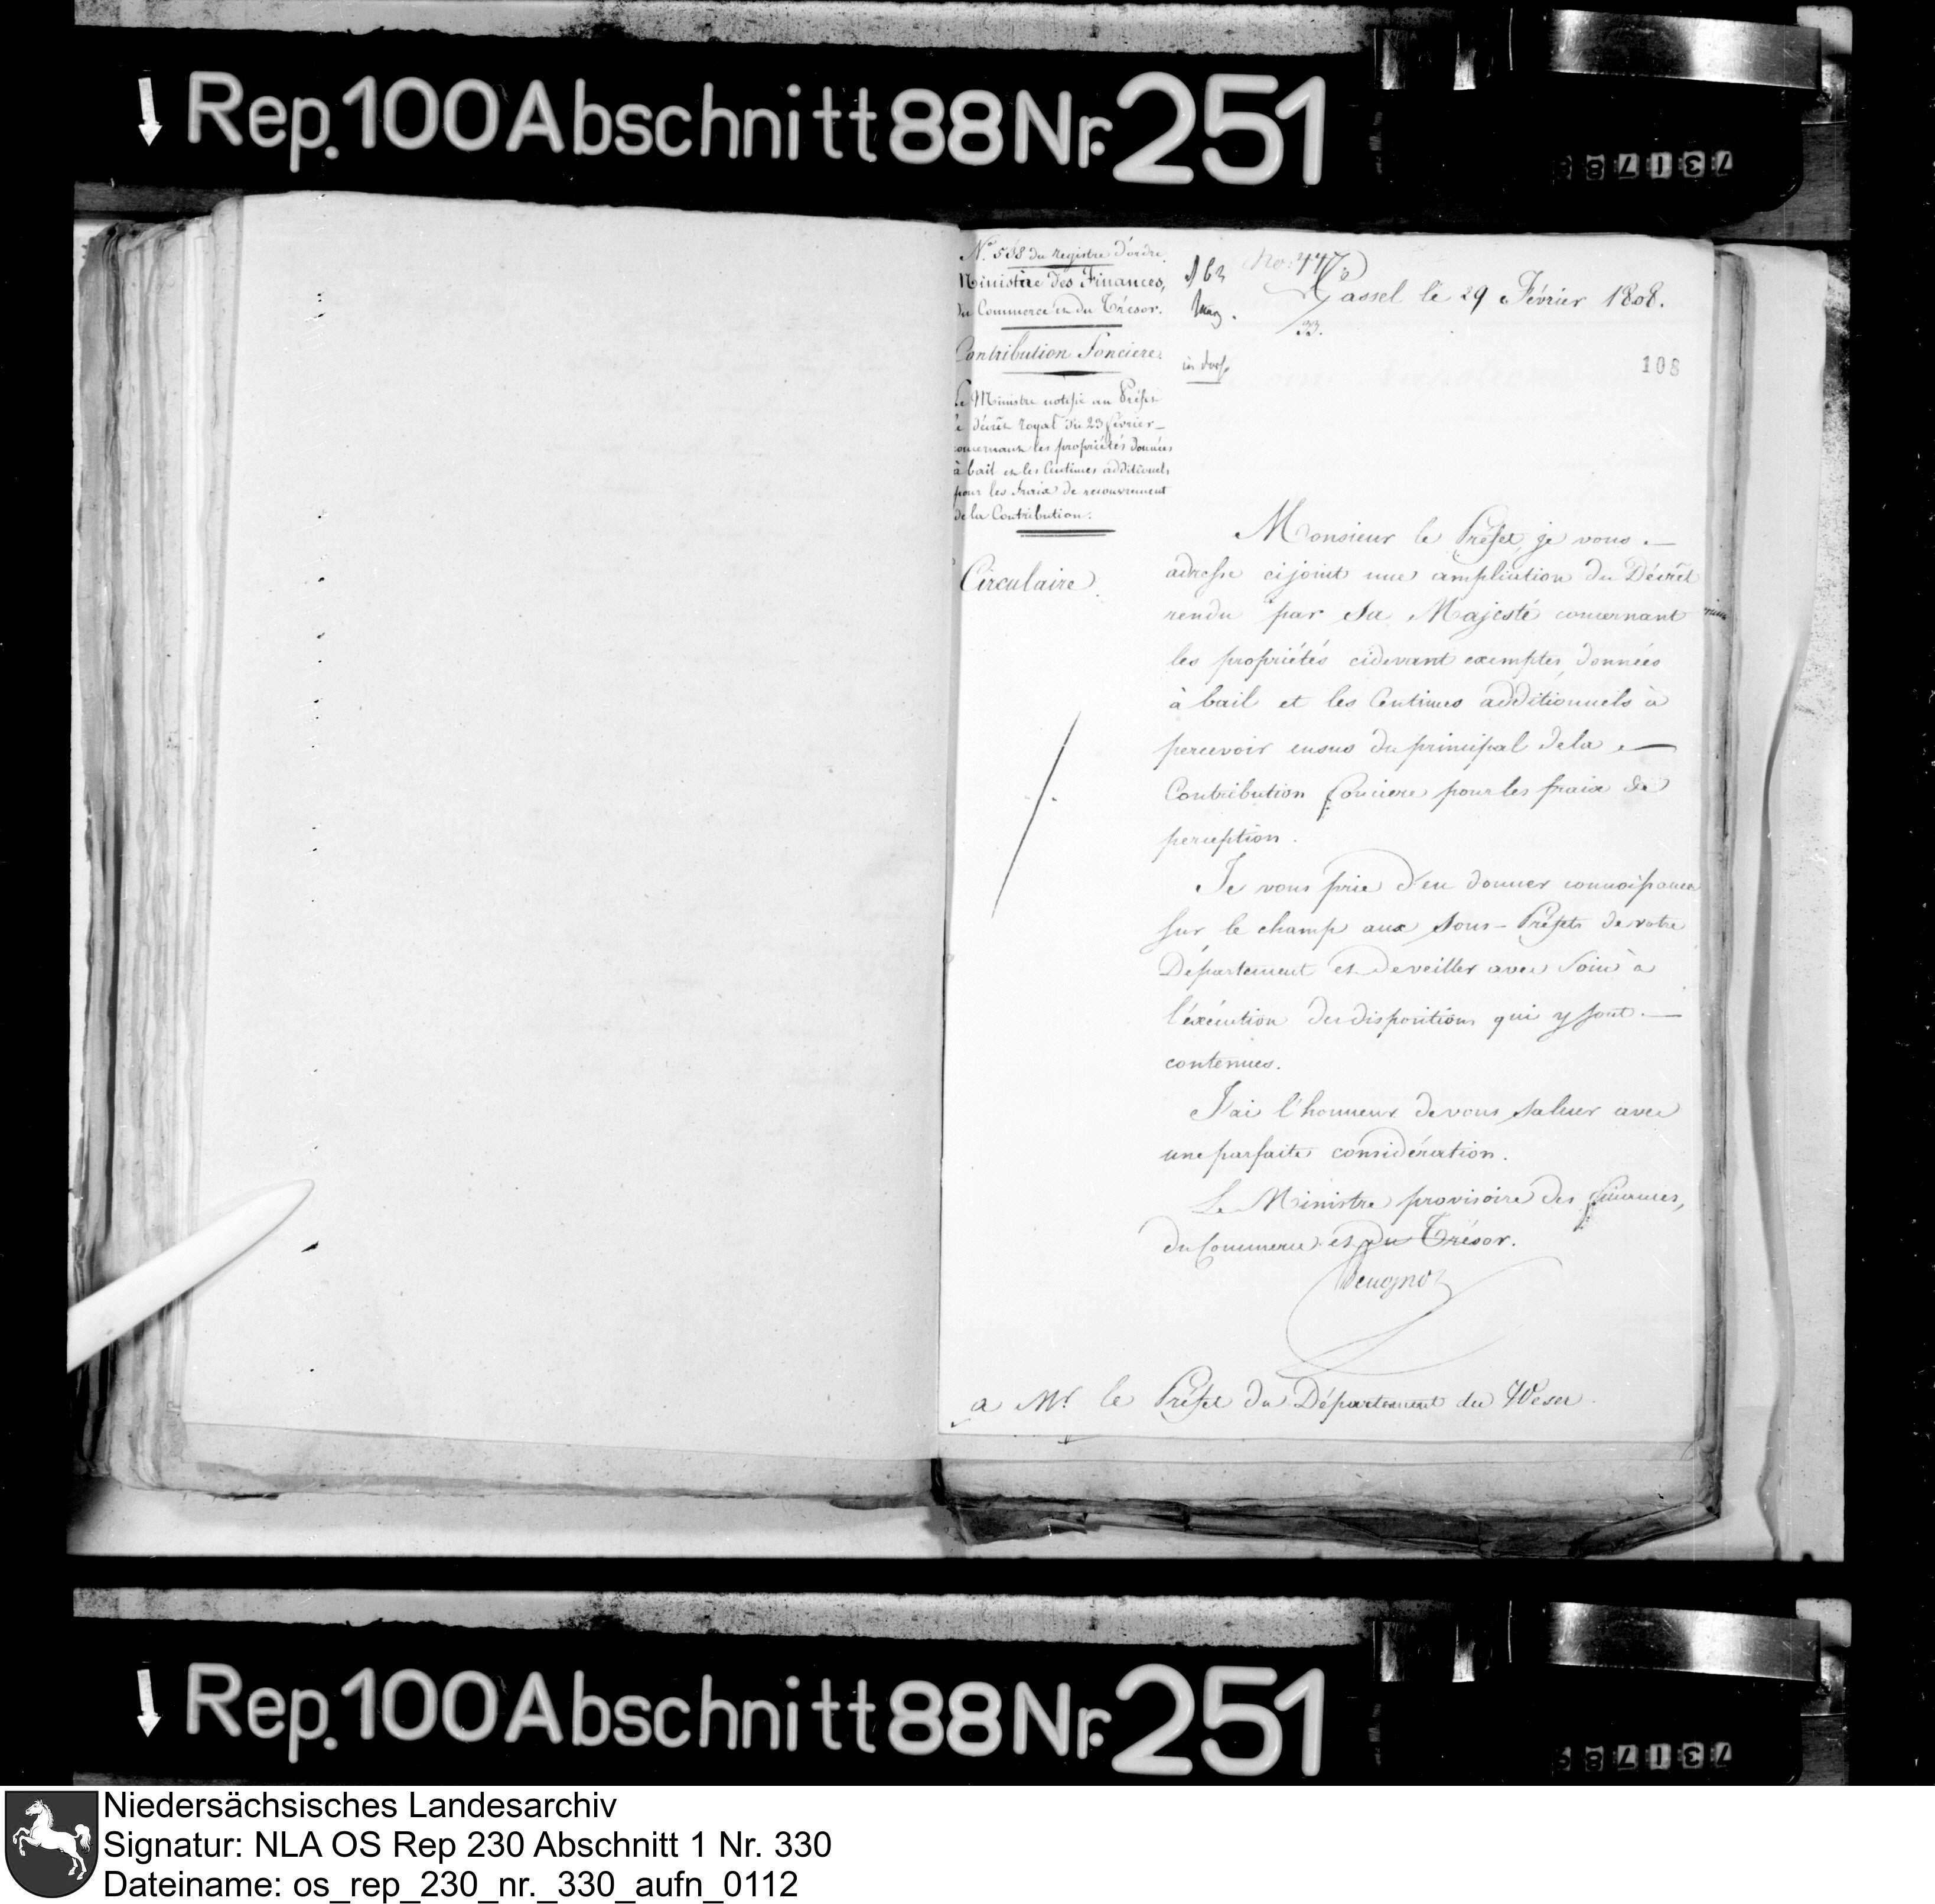 Rep. 100 Abschnitt 88 Nr. 251
N.º 518 du Registre d'ordre.
Ministère des Finances,
du Commerce et du Trésor.
Contribution Fonciere.
Le Ministre notifie au Préfet
le décret royal du 23 février
concernant les propriétés données
à bail et les Centimes additionels
pour les fraix de recouvrement
de la Contribution.
Circulaire.
No: 447
Cassel le 29 Février 1808.
108
Monsieur le Préfet, je vous
adresse cijoint une ampliation du Décrèt
rendu par Sa Majesté concernant
les propriétés cidevant exemptes, données
à bail et les Centimes additionnels à
percevoir ensus du principal dela
Contribution fonciere pour les fraix de
perception.
Je vous prie d'en donner connoissance
sur le champ aux Sous-Préfets de votre
Département et de veiller avec soin à
l'éxécution des dispositions qui y sont
contenues.
J'ai l'honneur de vous saluer avec
une parfaite considération.
Le Ministre provisoire des finances,
du Commerce et du Trésor.
Beugnot
a Mr. le Préfet du Département du Weser
Rep. 100 Abschnitt 88 Nr. 251
Niedersächsisches Landesarchiv
Signatur: NLA OS Rep 230 Abschnitt 1 Nr. 330
Dateiname: os_rep_230_nr._330_aufn_0112